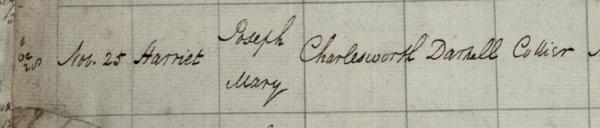 Joseph
Nov. 25 Harriet Charlesworth Darnall Collier
Mary